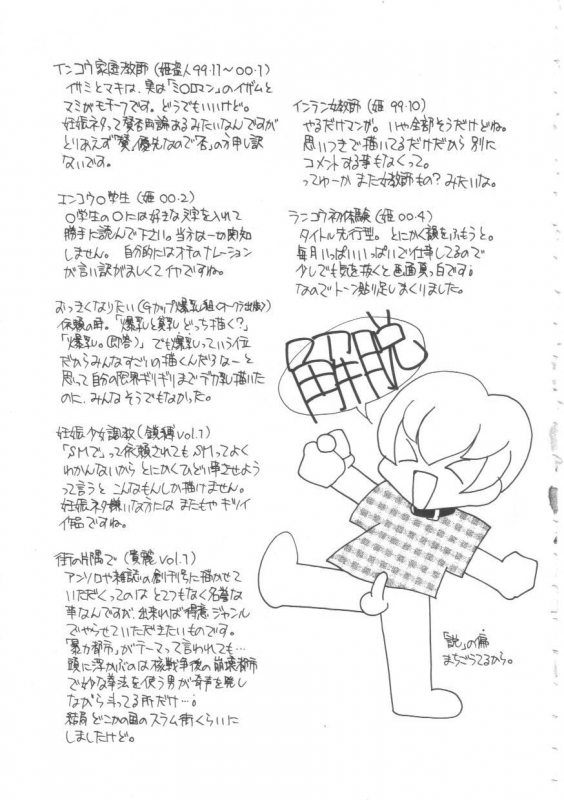 インコウ家庭教師(姫盗人99.11〜00.1)
イサミとマキは、実は「ミロロマン」のイザムと
マミがモチーフです。どうでもいいけど。
妊娠ネタって賛否両論あるみたいなんですが
とりあえず「賛」優先なので「否」の方申し訳
ないです。
エンコウ○学生(姫00.2)
○学生の○には好きな文字を入れて
勝手に読んで下さい。当方は一切関知
しません。自分的にはオチのナレーション
が言い訳がましくてイヤですね。
おっきくなりたい(Gカップ爆乳組<オークラ出版>)
依頼の時。「爆乳と貧乳どっち描く?」
「爆乳。(即答)」でも爆乳っていう位
だからみんなすごいの描くんだろなーと
思って自分の限界ギリギリまでデカ乳描いた
のに、みんなそうでもなかった。
妊娠少女調教(鎖縛Vol.1)
「SMで」って依頼されてもSMってよく
わかんないからとにかくひどい事させよう
って言うとこんなもんしか描けません。
妊娠ネタ嫌いな方にはまたもやキツイ
作品ですね。
街の片隅で(貴麗Vol.1)
アンソロや雑誌の創刊号に描かせて
いただくってのはとてつもなく名誉な
事なんですが、出来れば得意ジャンル
でやらせていただきたいものです。
「暴力都市」がテーマって言われても…
頭に浮かぶのは核戦争後の崩壊都市
で妙な拳法を使う男が奇声を発し
ながら斗ってる所だけ…。
結局どこかの国のスラム街くらいに
しましたけど。
インラン女教師(姫99.10)
やるだけマンガ。いや全部そうだけどね。
思いつきで描いてるだけだから別に
コメントする事もなくって。
ってゆーかまた女教師もの?みたいな。
ランコウ初体験(姫00.4)
タイトル先行型。とにかく頭数をふもうと。
毎月いっぱいいっぱいで仕事してるので
少しでも気を抜くと画面真っ白です。
なのでトーン貼り足しまくりました。
解脱
「説」の偏
まちごうてるから。